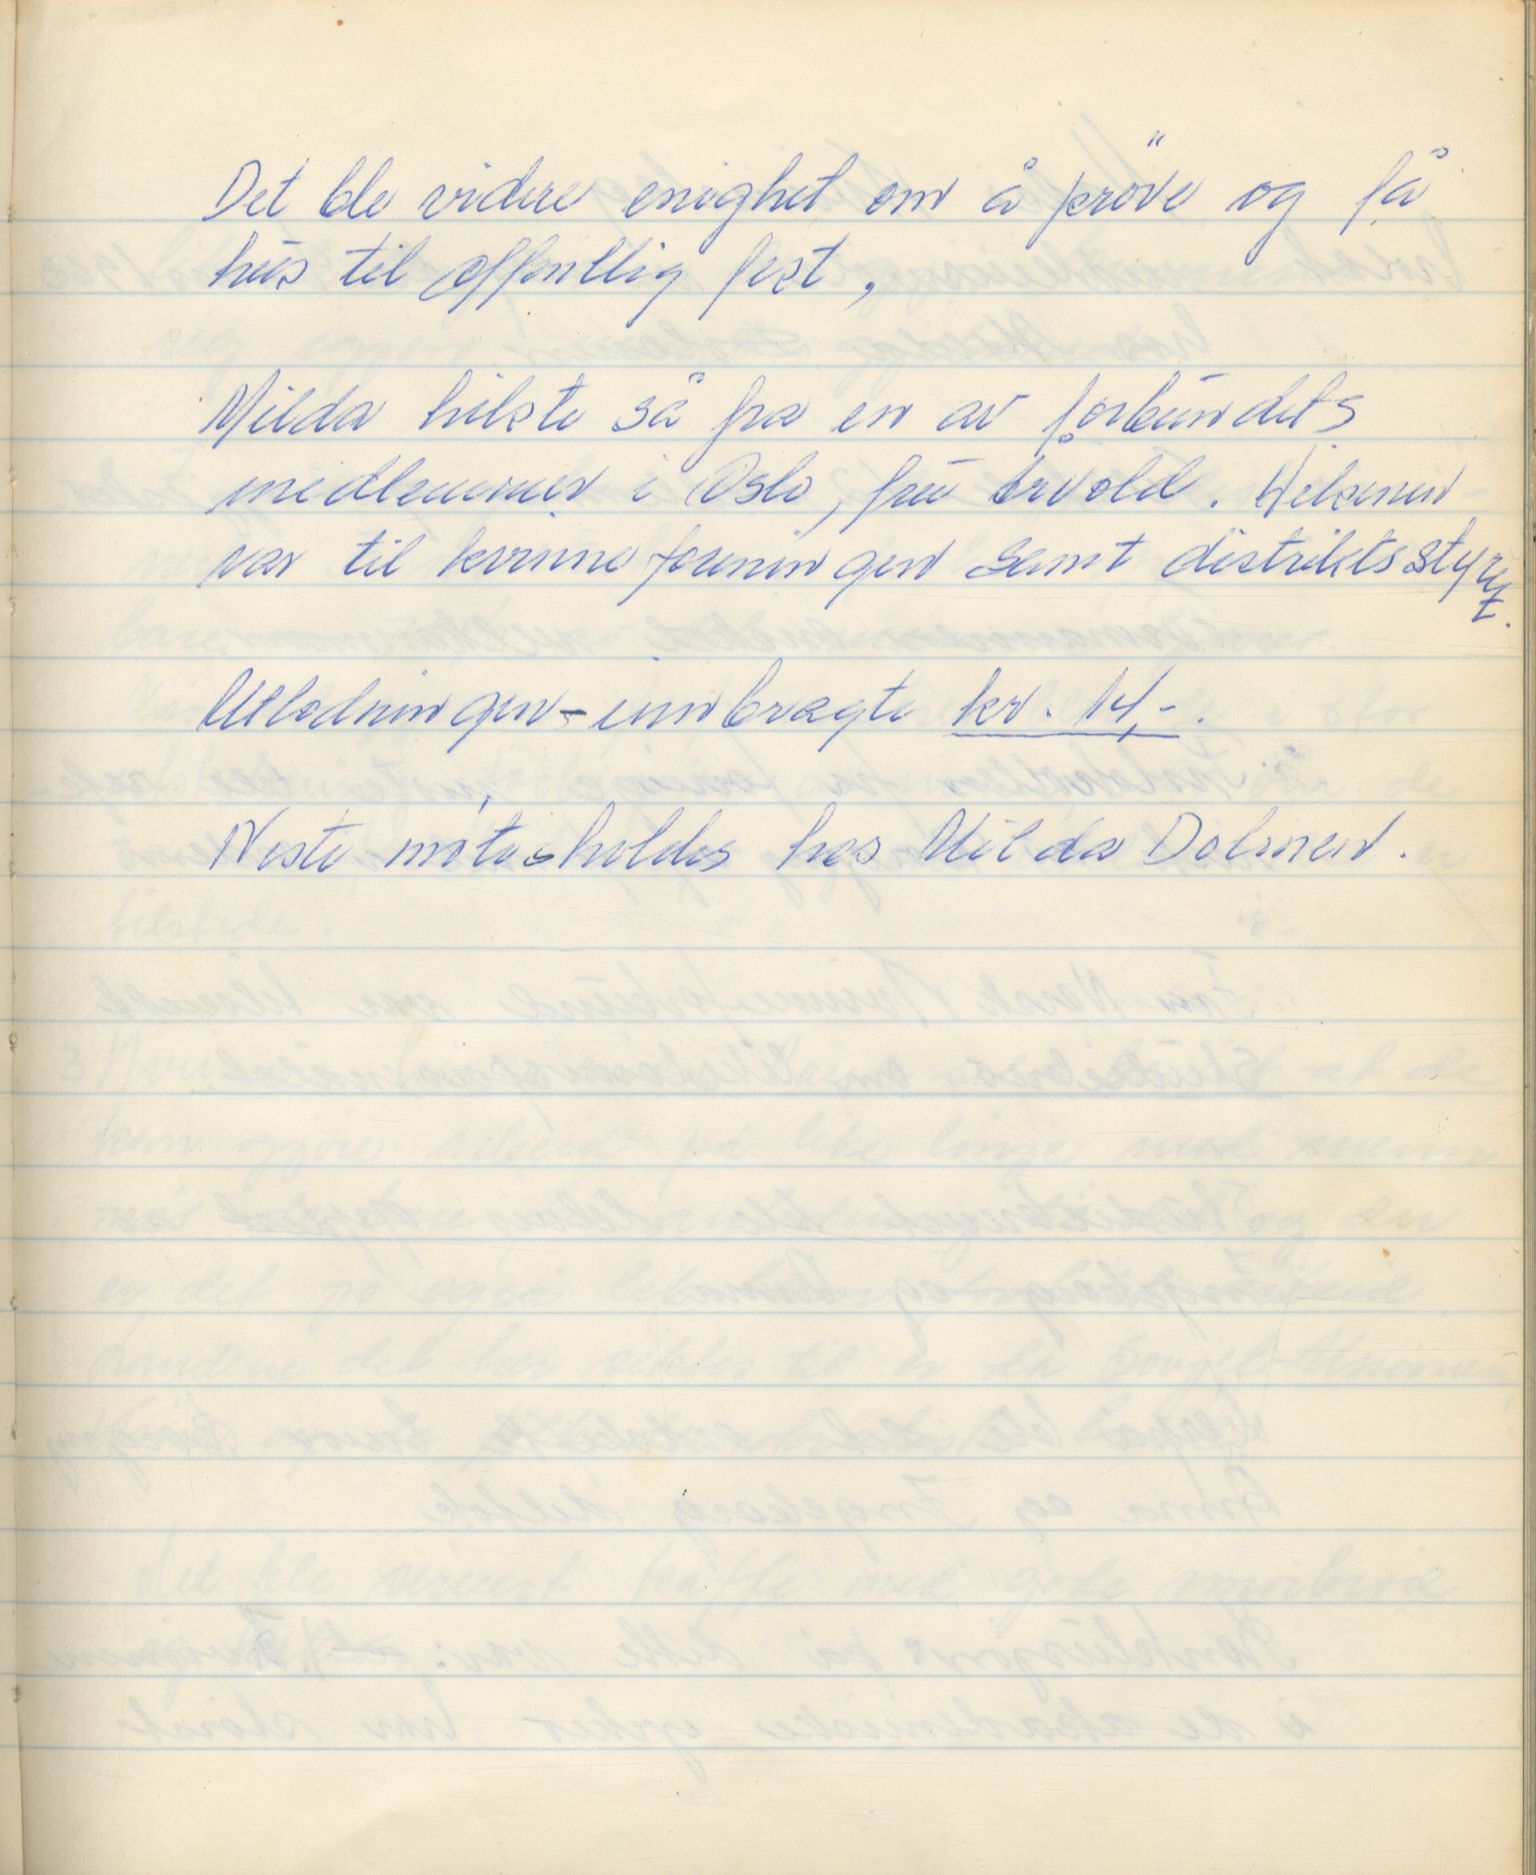 Det ble videre enighet om å pröve og få
hus til offentlig fest,
Milda hilste så fra en av forbundets
medlemmer i Oslo, fru Arvold. Hilsenen
var til kvinneforeningen samt distriktsstyret.
Utlodningen innbragte kr. 14,-.
Neste möte holdes hos Milda Dolmen.